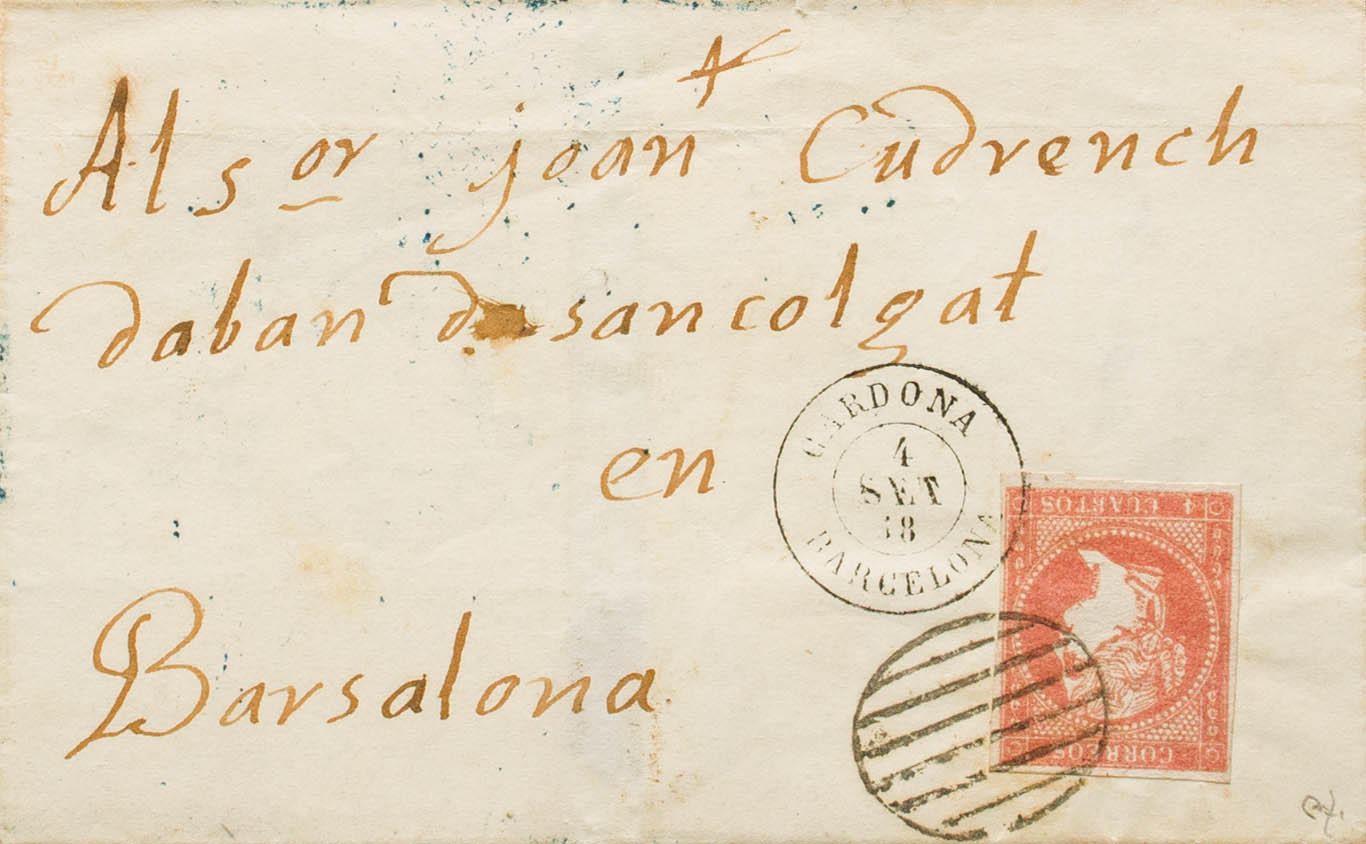 +
Al sor joan Cudrench
daban de sancolgat
en
Barsalona
CARDONA
4
SET
18
BARCELONA
4 CUARTOS
CORREOS